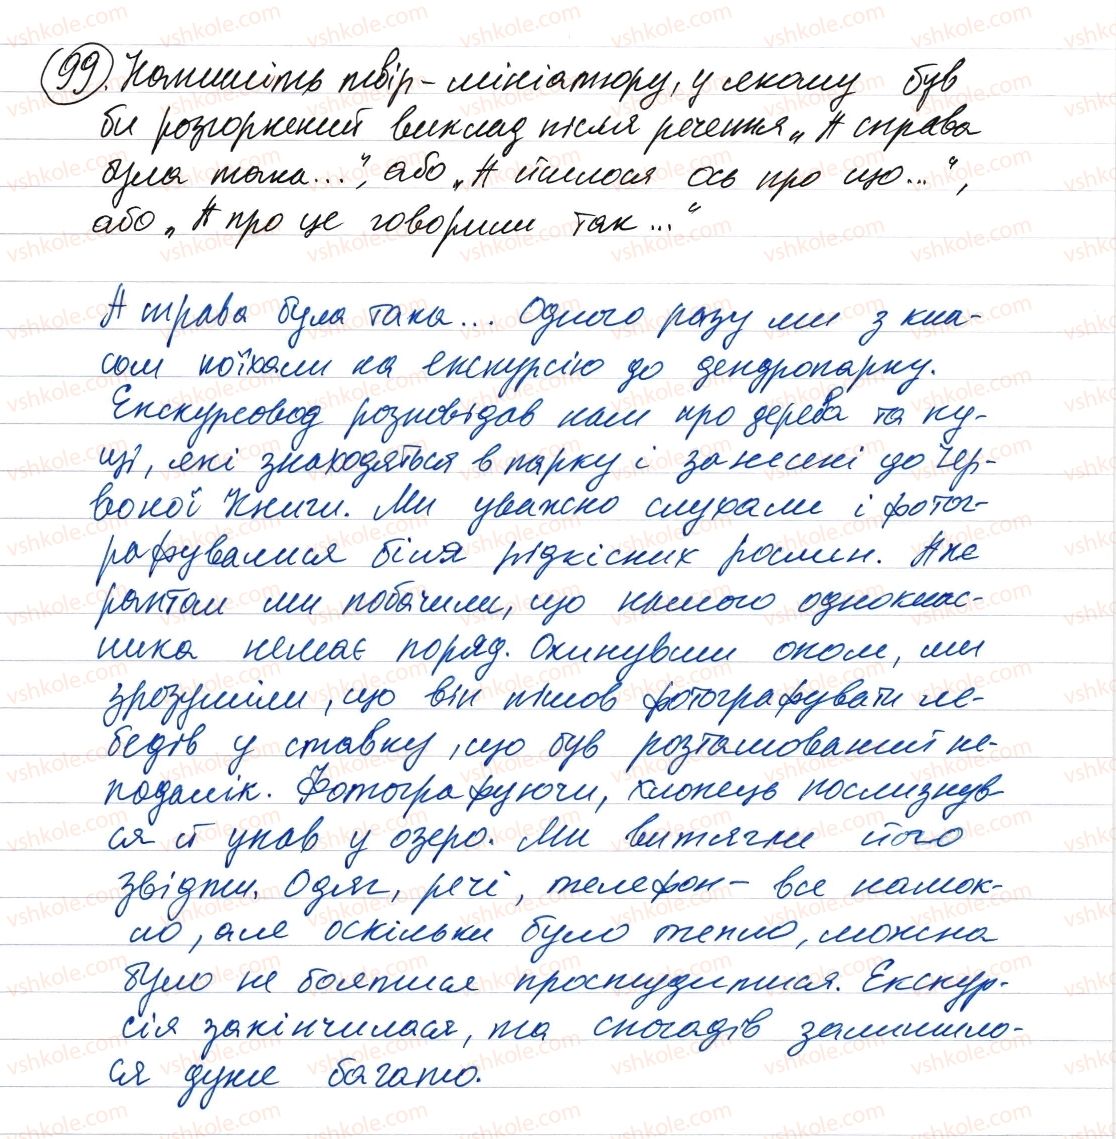 99. Напишіть твір-мініатюру, у якому був
би розгорнений виклад після речення „А справа
була така...", або „А йшлося ось про що...",
або „А про це говорили так..."
А справа була така... Одного разу ми з кла-
сом поїхали на екскурсію до дендропарку.
Екскурсовод розповідав нам про дерева та ку-
щі, які знаходяться в парку і занесені до Чер-
воної Книги. Ми уважно слухали і фотог-
рафувалися біля рідкісних рослин. Аже
раптом ми побачили, що нашого одноклас-
ника немає поряд. Окинувши оком, ми
зрозуміли, що він пішов фотографувати ле-
бедів у ставку, що був розташований не-
подалік. Фотографуючи, хлопець послизнув-
ся й упав у озеро. Ми витягли його
звідти. Одяг, речі, телефон - все намок-
ло, але оскільки було тепло, можна
було не боятися простудитися. Екскур-
сія закінчилася, та спогадів залишило-
ся дуже багато.